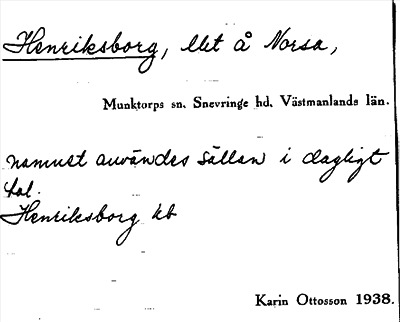 Henriksborg, lht å Norsa,
Munktorps sn. Snevringe hd. Västmanlands län.
namnet användes sällan i dagligt
tal.
Henriksborg kb
Karin Ottosson 1938.